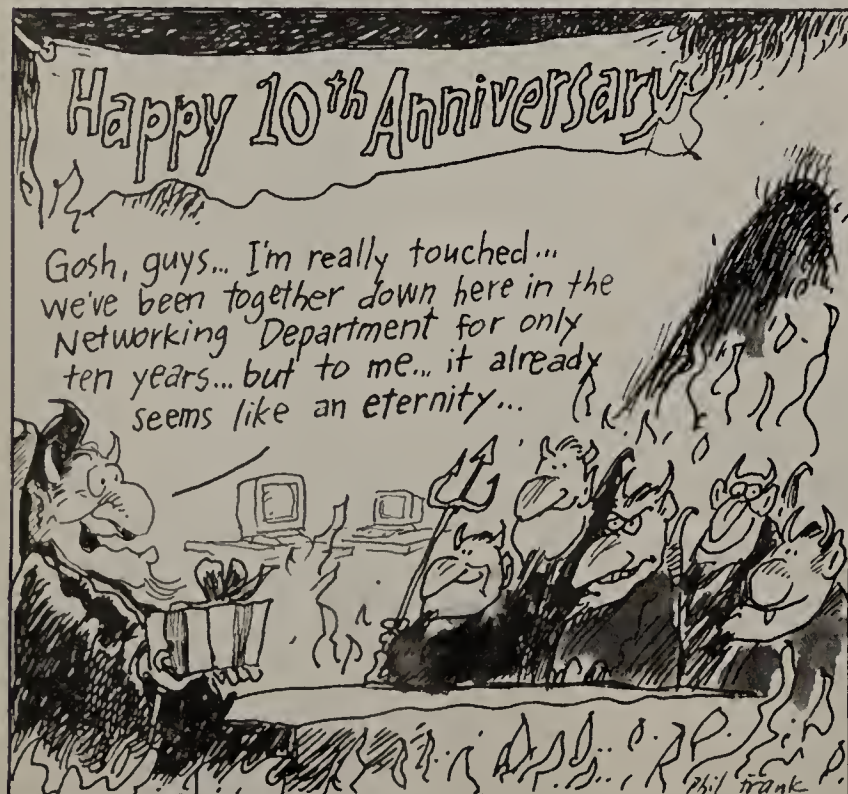 Happy 10th Anniversary
Gosh, guys... I'm really touched...
we've been together down here in the
Networking Department for only
ten years... but to me... it already
seems like an eternity...
Phil Frank